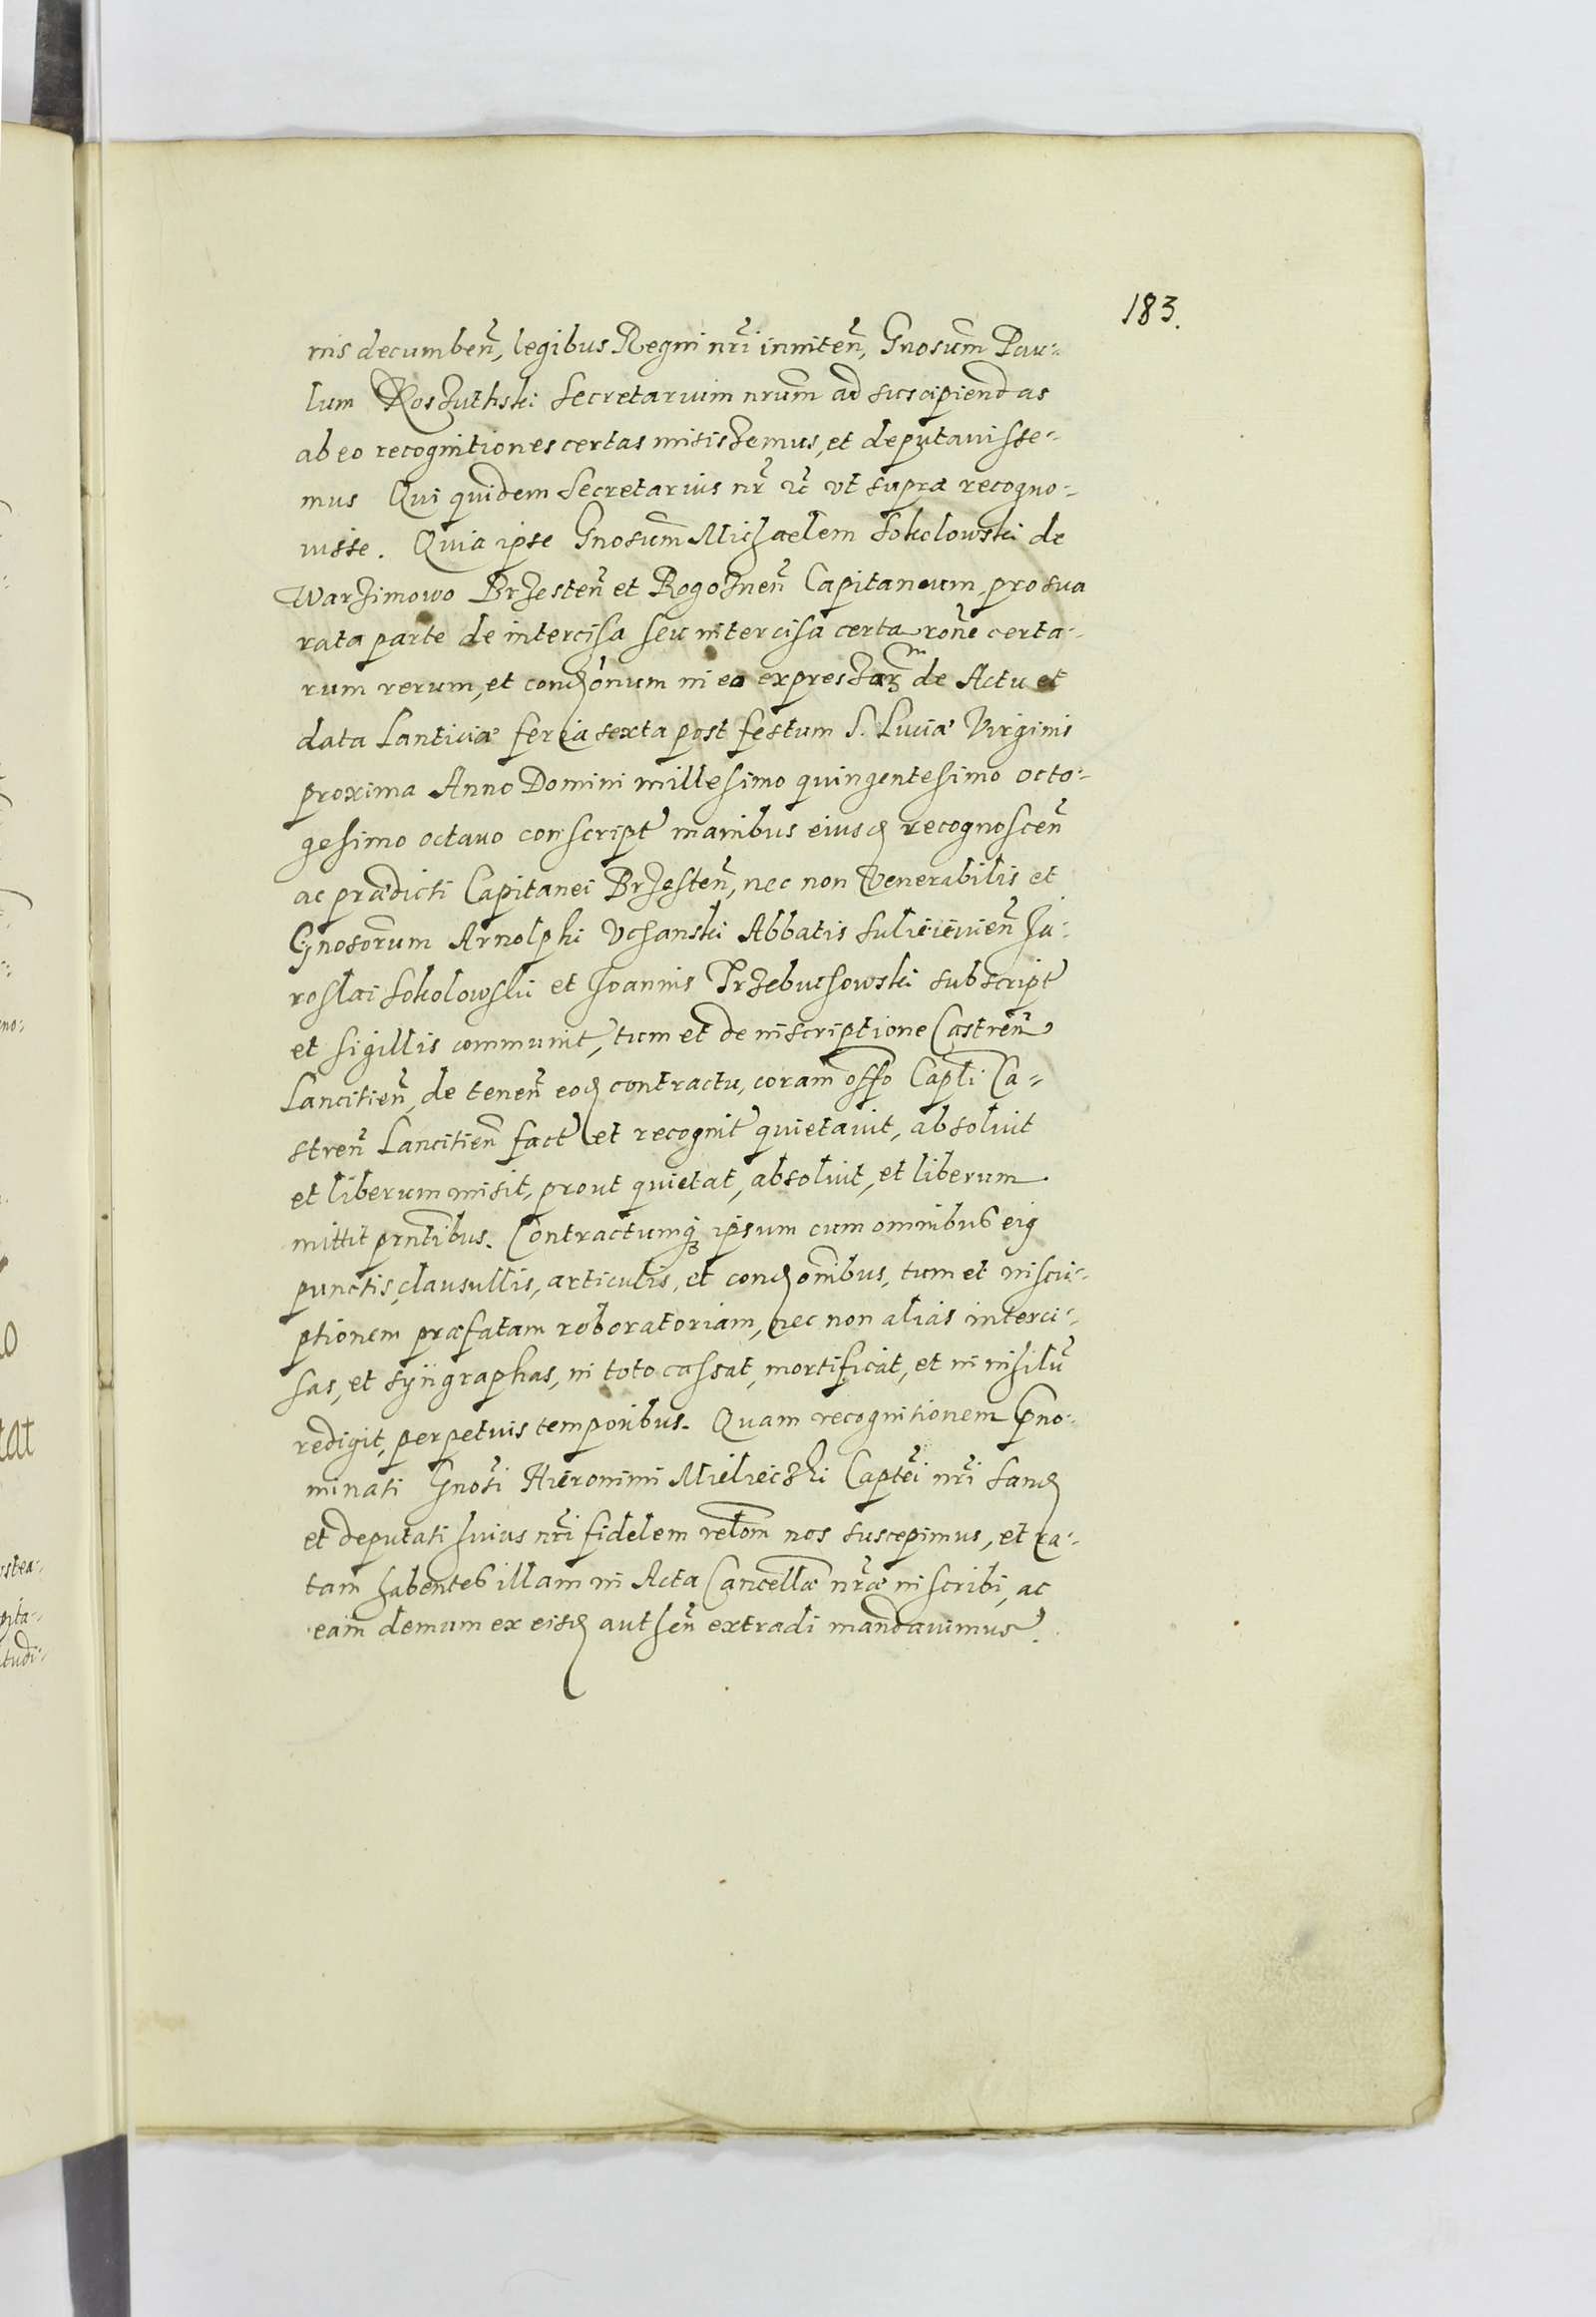 183.
nis decumbeñ, legibus Regni nr̃i inniteñ, Gnosum̃ Pau-
lum Roszuthski Secretarium nrum̃ ad suscipiendas
ab eo recognitiones certas misissemus, et deputavisse-
mus Qui quidem Secretarius nr̃ ut supra recogno-
visse. Quia ipse Gnosum̃ Michaelem Sokolowski de
Warzimowo Brzesteñ et Rogozneñ Capitaneum, pro sua
rata parte de intercisa seu intercisa certa rone certa-
rum rerum, et condonum in ea expressarm de Actu et
data Lanticiæ feria sexta post festum S. Luciæ Virginis
proxima Anno Domini millesimo quingentesimo octo-
gesimo octavo conscript manibus eiusd recognosceñ
ac prædicti Capitanei Brzesteñ, nec non Venerabilis et
Gnosorum Arnolphi Uchanski Abbatis Sulieievieñ Ja-
roslai Sokolowski et Joannis Trzebuchowski subscript
et sigillis communit, tum et de inscriptione Castreñ
Lancitieñ, de teneñ eod contractu, coram offo Capli Ca-
streñ Lancitieñ fact et recognit quietavit, absolvit
et liberum misit, prout quietat, absolvit, et liberum
mittit prntibus. Contractumq ipsum cum omnibus eig
punctis, clausullis, articulis, et condonibus, tum et inscri-
ptionem præfatam roboratoriam, nec non alias interci-
sas, et syngraphas, in toto cassat, mortificat, et in nihilũ
redigit, perpetuis temporibus. Quam recognitionem pno-
minati Gnosi Hieronimi Mielieczki Captei nr̃i Sand
et deputati huius nr̃i fidelem relom nos suscepimus, et ra-
tam habentes illam in Acta Cancellæ nr̃æ inscribi, ac
eam demum ex eisd autheñ extradi mandavimus.